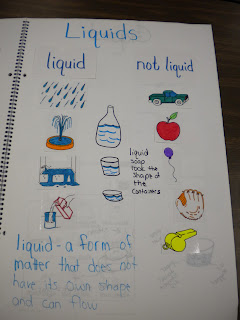 Liquids
liquid
not liquid
liquid
soap
took the
shape of
the
containers
liquid - a form of
matter that does not
have its own shape
and can flow